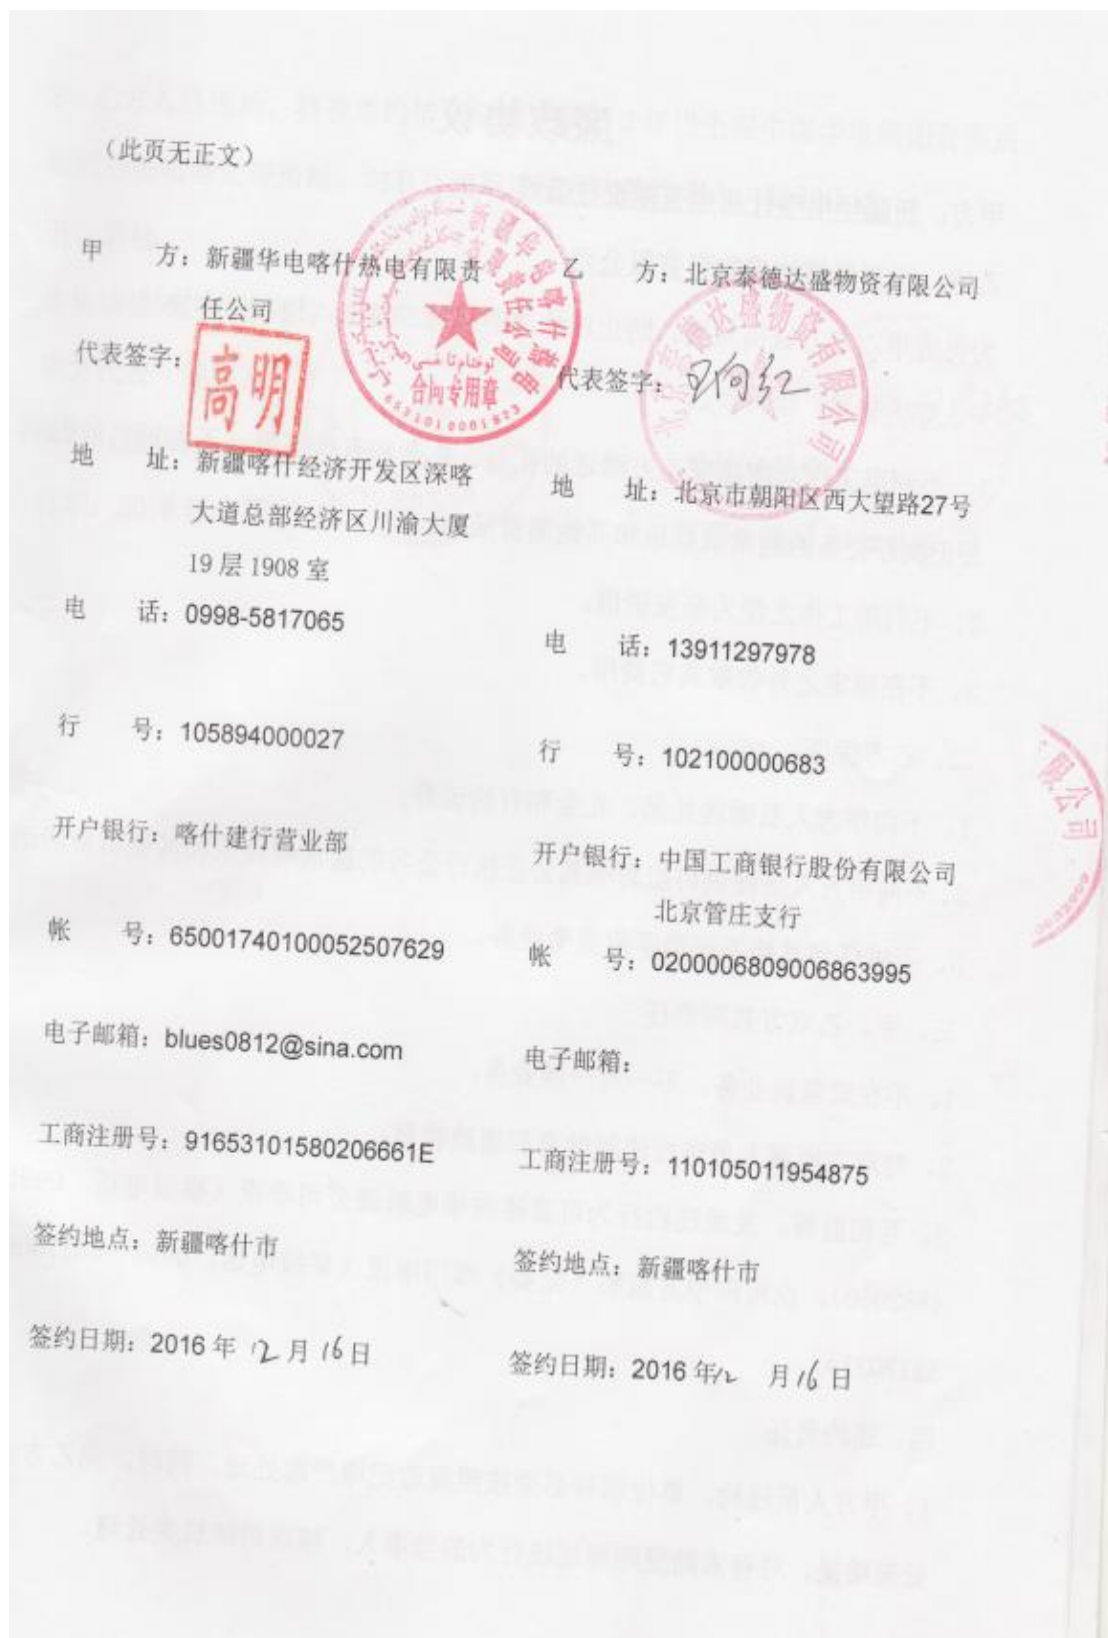 （此页无正文）
甲 方：新疆华电喀什热电有限责
任公司
代表签字：
高明
合同专用章
6531010001923
地 址：新疆喀什经济开发区深喀
大道总部经济区川渝大厦
19 层 1908 室
电 话：0998-5817065
行 号：105894000027
开户银行：喀什建行营业部
帐 号：65001740100052507629
电子邮箱：blues0812@sina.com
工商注册号：91653101580206661E
签约地点：新疆喀什市
签约日期：2016 年 12 月 16 日
乙 方：北京泰德达盛物资有限公司
代表签字：
地 址：北京市朝阳区西大望路27号
电 话：13911297978
行 号：102100000683
开户银行：中国工商银行股份有限公司
北京管庄支行
帐 号：0200006809006863995
电子邮箱：
工商注册号：110105011954875
签约地点：新疆喀什市
签约日期：2016 年 12 月 16 日
限公司